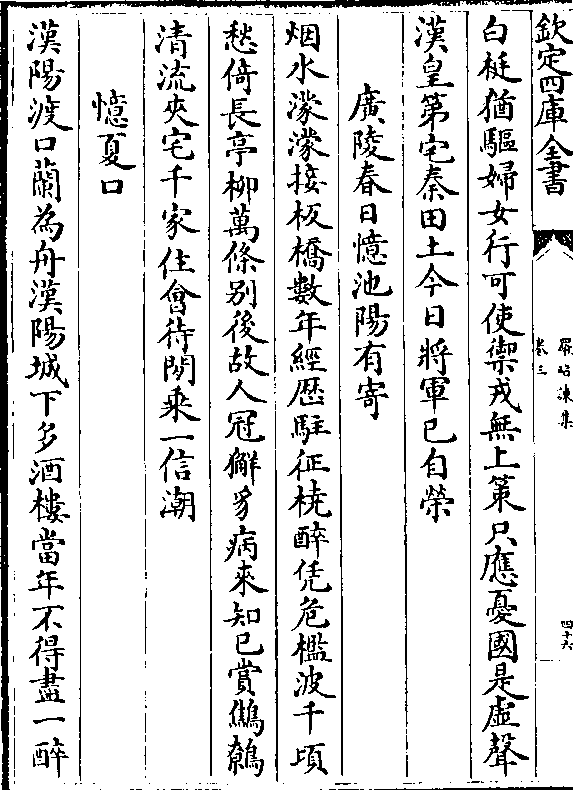 欽定四庫全書
羅昭諫集
卷三
四十六
白梃猶驅婦女行可使禦戎無上策只應憂國是虛聲
漢皇第宅秦田土今日將軍已自榮
廣陵春日憶池陽有寄
烟水濛濛接板橋數年經歴駐征橈醉凭危檻波千頃
愁倚長亭柳萬條别後故人冠獬豸病來知已賞鷦鷯
清流夾宅千家住會待閒乘一信潮
憶夏口
漢陽渡口蘭為舟漢陽城下多酒樓當年不得盡一醉